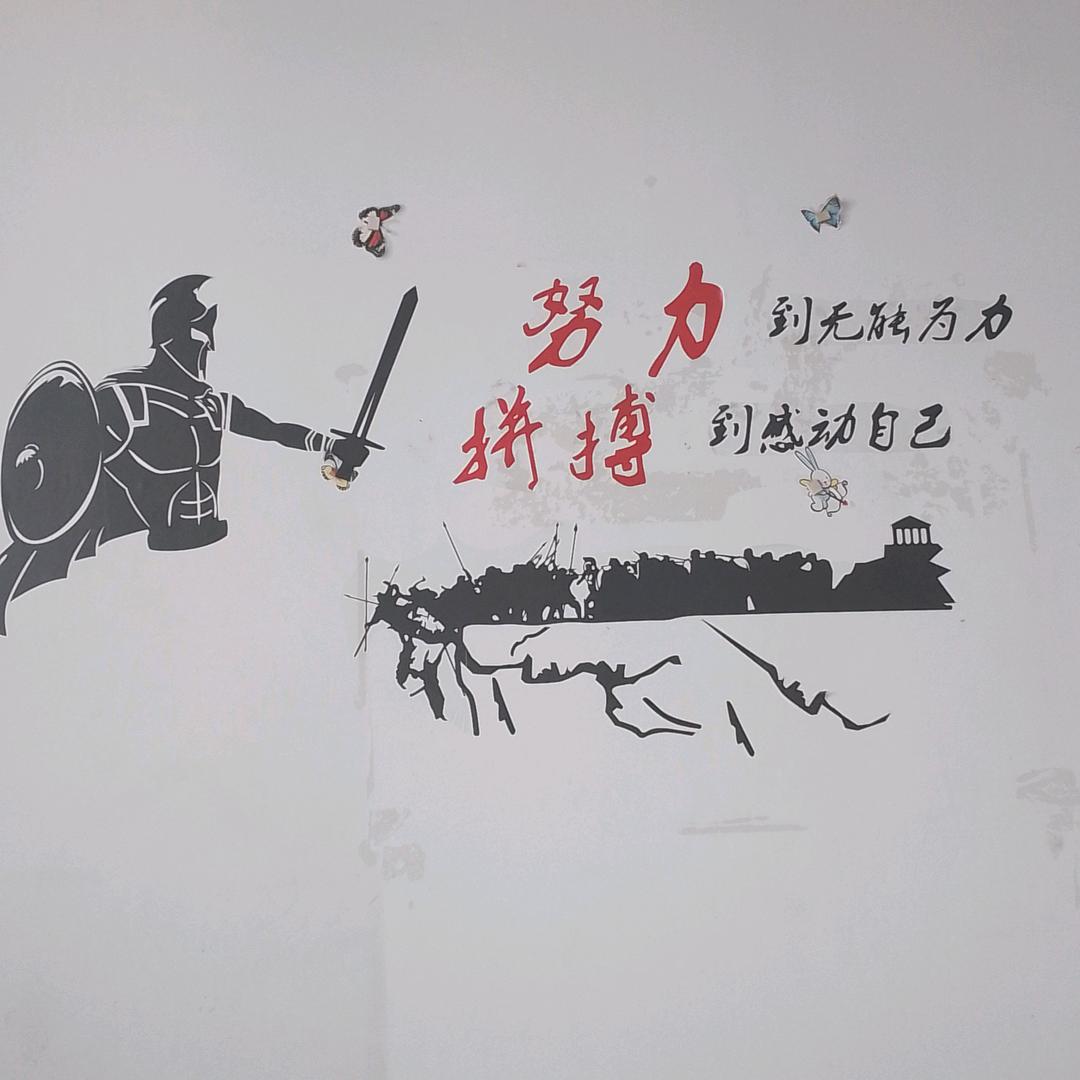 努力 到无能为力
拼搏 到感动自己